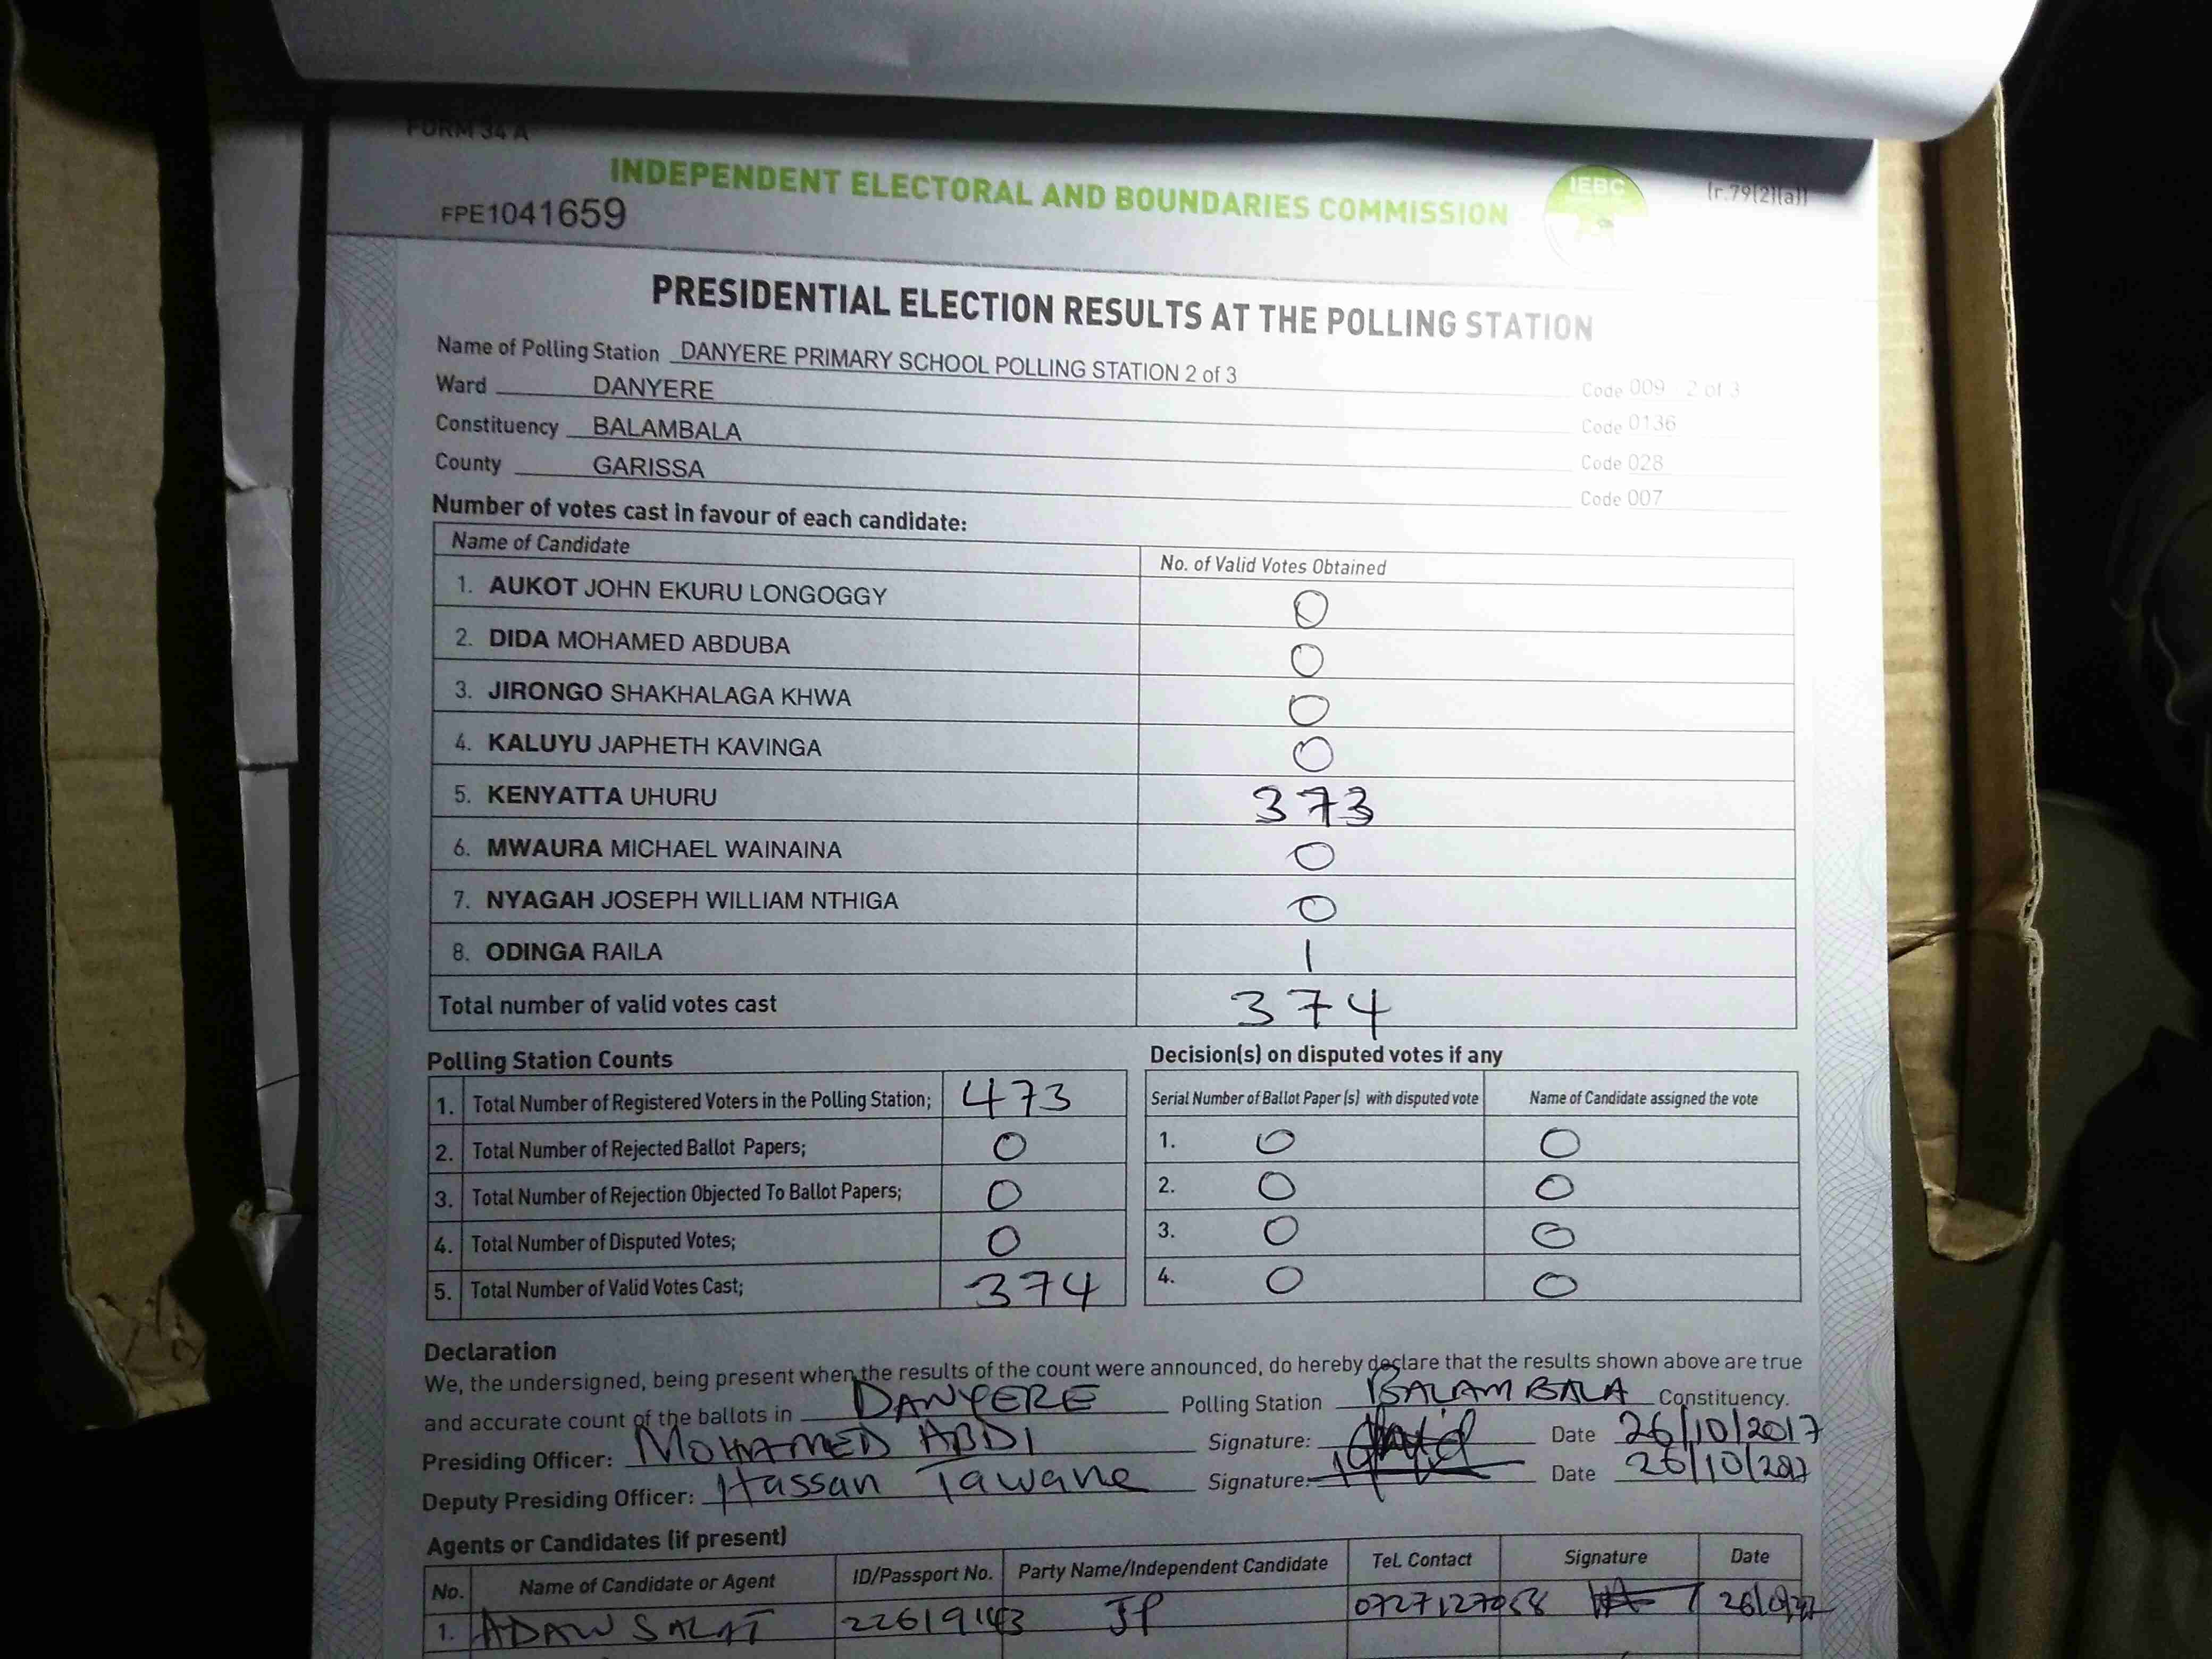 FORM 34 A
INDEPENDENT ELECTORAL AND BOUNDARIES COMMISSION
IEBC
(r.79(2)(a))
FPE1041659
PRESIDENTIAL ELECTION RESULTS AT THE POLLING STATION
Name of Polling Station DANYERE PRIMARY SCHOOL POLLING STATION 2 of 3 Code 009 2 of 3
Ward DANYERE Code 0136
Constituency BALAMBALA Code 028
County GARISSA Code 007
Number of votes cast in favour of each candidate:
Name of Candidate No. of Valid Votes Obtained
1. AUKOT JOHN EKURU LONGOGGY 0
2. DIDA MOHAMED ABDUBA 0
3. JIRONGO SHAKHALAGA KHWA 0
4. KALUYU JAPHETH KAVINGA 0
5. KENYATTA UHURU 373
6. MWAURA MICHAEL WAINAINA 0
7. NYAGAH JOSEPH WILLIAM NTHIGA 0
8. ODINGA RAILA 1
Total number of valid votes cast 374
Polling Station Counts
1. Total Number of Registered Voters in the Polling Station; 473
2. Total Number of Rejected Ballot Papers; 0
3. Total Number of Rejection Objected To Ballot Papers; 0
4. Total Number of Disputed Votes; 0
5. Total Number of Valid Votes Cast; 374
Decision(s) on disputed votes if any
Serial Number of Ballot Paper (s) with disputed vote Name of Candidate assigned the vote
1. 0 0
2. 0 0
3. 0 0
4. 0 0
Declaration
We, the undersigned, being present when the results of the count were announced, do hereby declare that the results shown above are true
and accurate count of the ballots in DANYERE Polling Station BALAMBALA Constituency.
Presiding Officer: MOHAMED ABDI Signature: Date 26/10/2017
Deputy Presiding Officer: Hassan Tawane Signature: Date 26/10/2017
Agents or Candidates (if present)
No. Name of Candidate or Agent ID/Passport No. Party Name/Independent Candidate Tel. Contact Signature Date
1. ADAW SALAT 22619143 JP